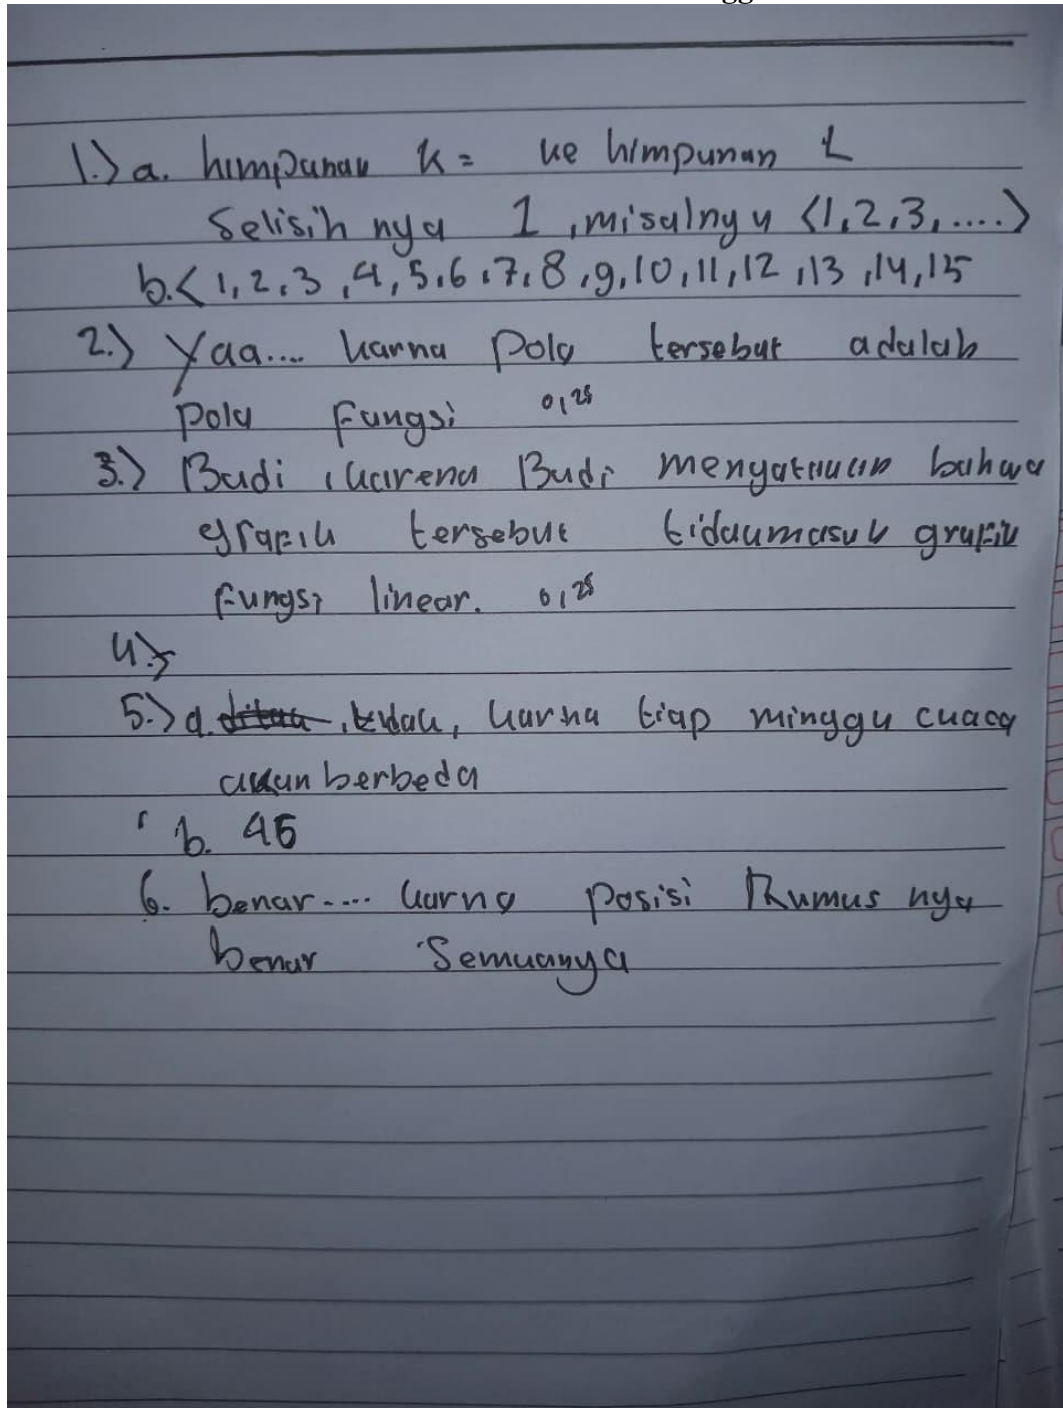 1.) a. himpunan K = ke himpunan L
Selisih nya 1, misalnya <1,2,3,....>
b.< 1,2,3,4,5,6,7,8,9,10,11,12,13,14,15
2.) Yaa.... karna Pola tersebut adalah
Pola Fungsi 0,25
3.) Budi, karena Budi menyatakan bahwa
grafik tersebut tidakmasuk grafik
Fungsi linear. 0,25
4.)
5.) a. tidak, karna tiap minggu cuaca
akan berbeda
b. 45
6. benar.... karna posisi Rumus nya
benar Semuanya